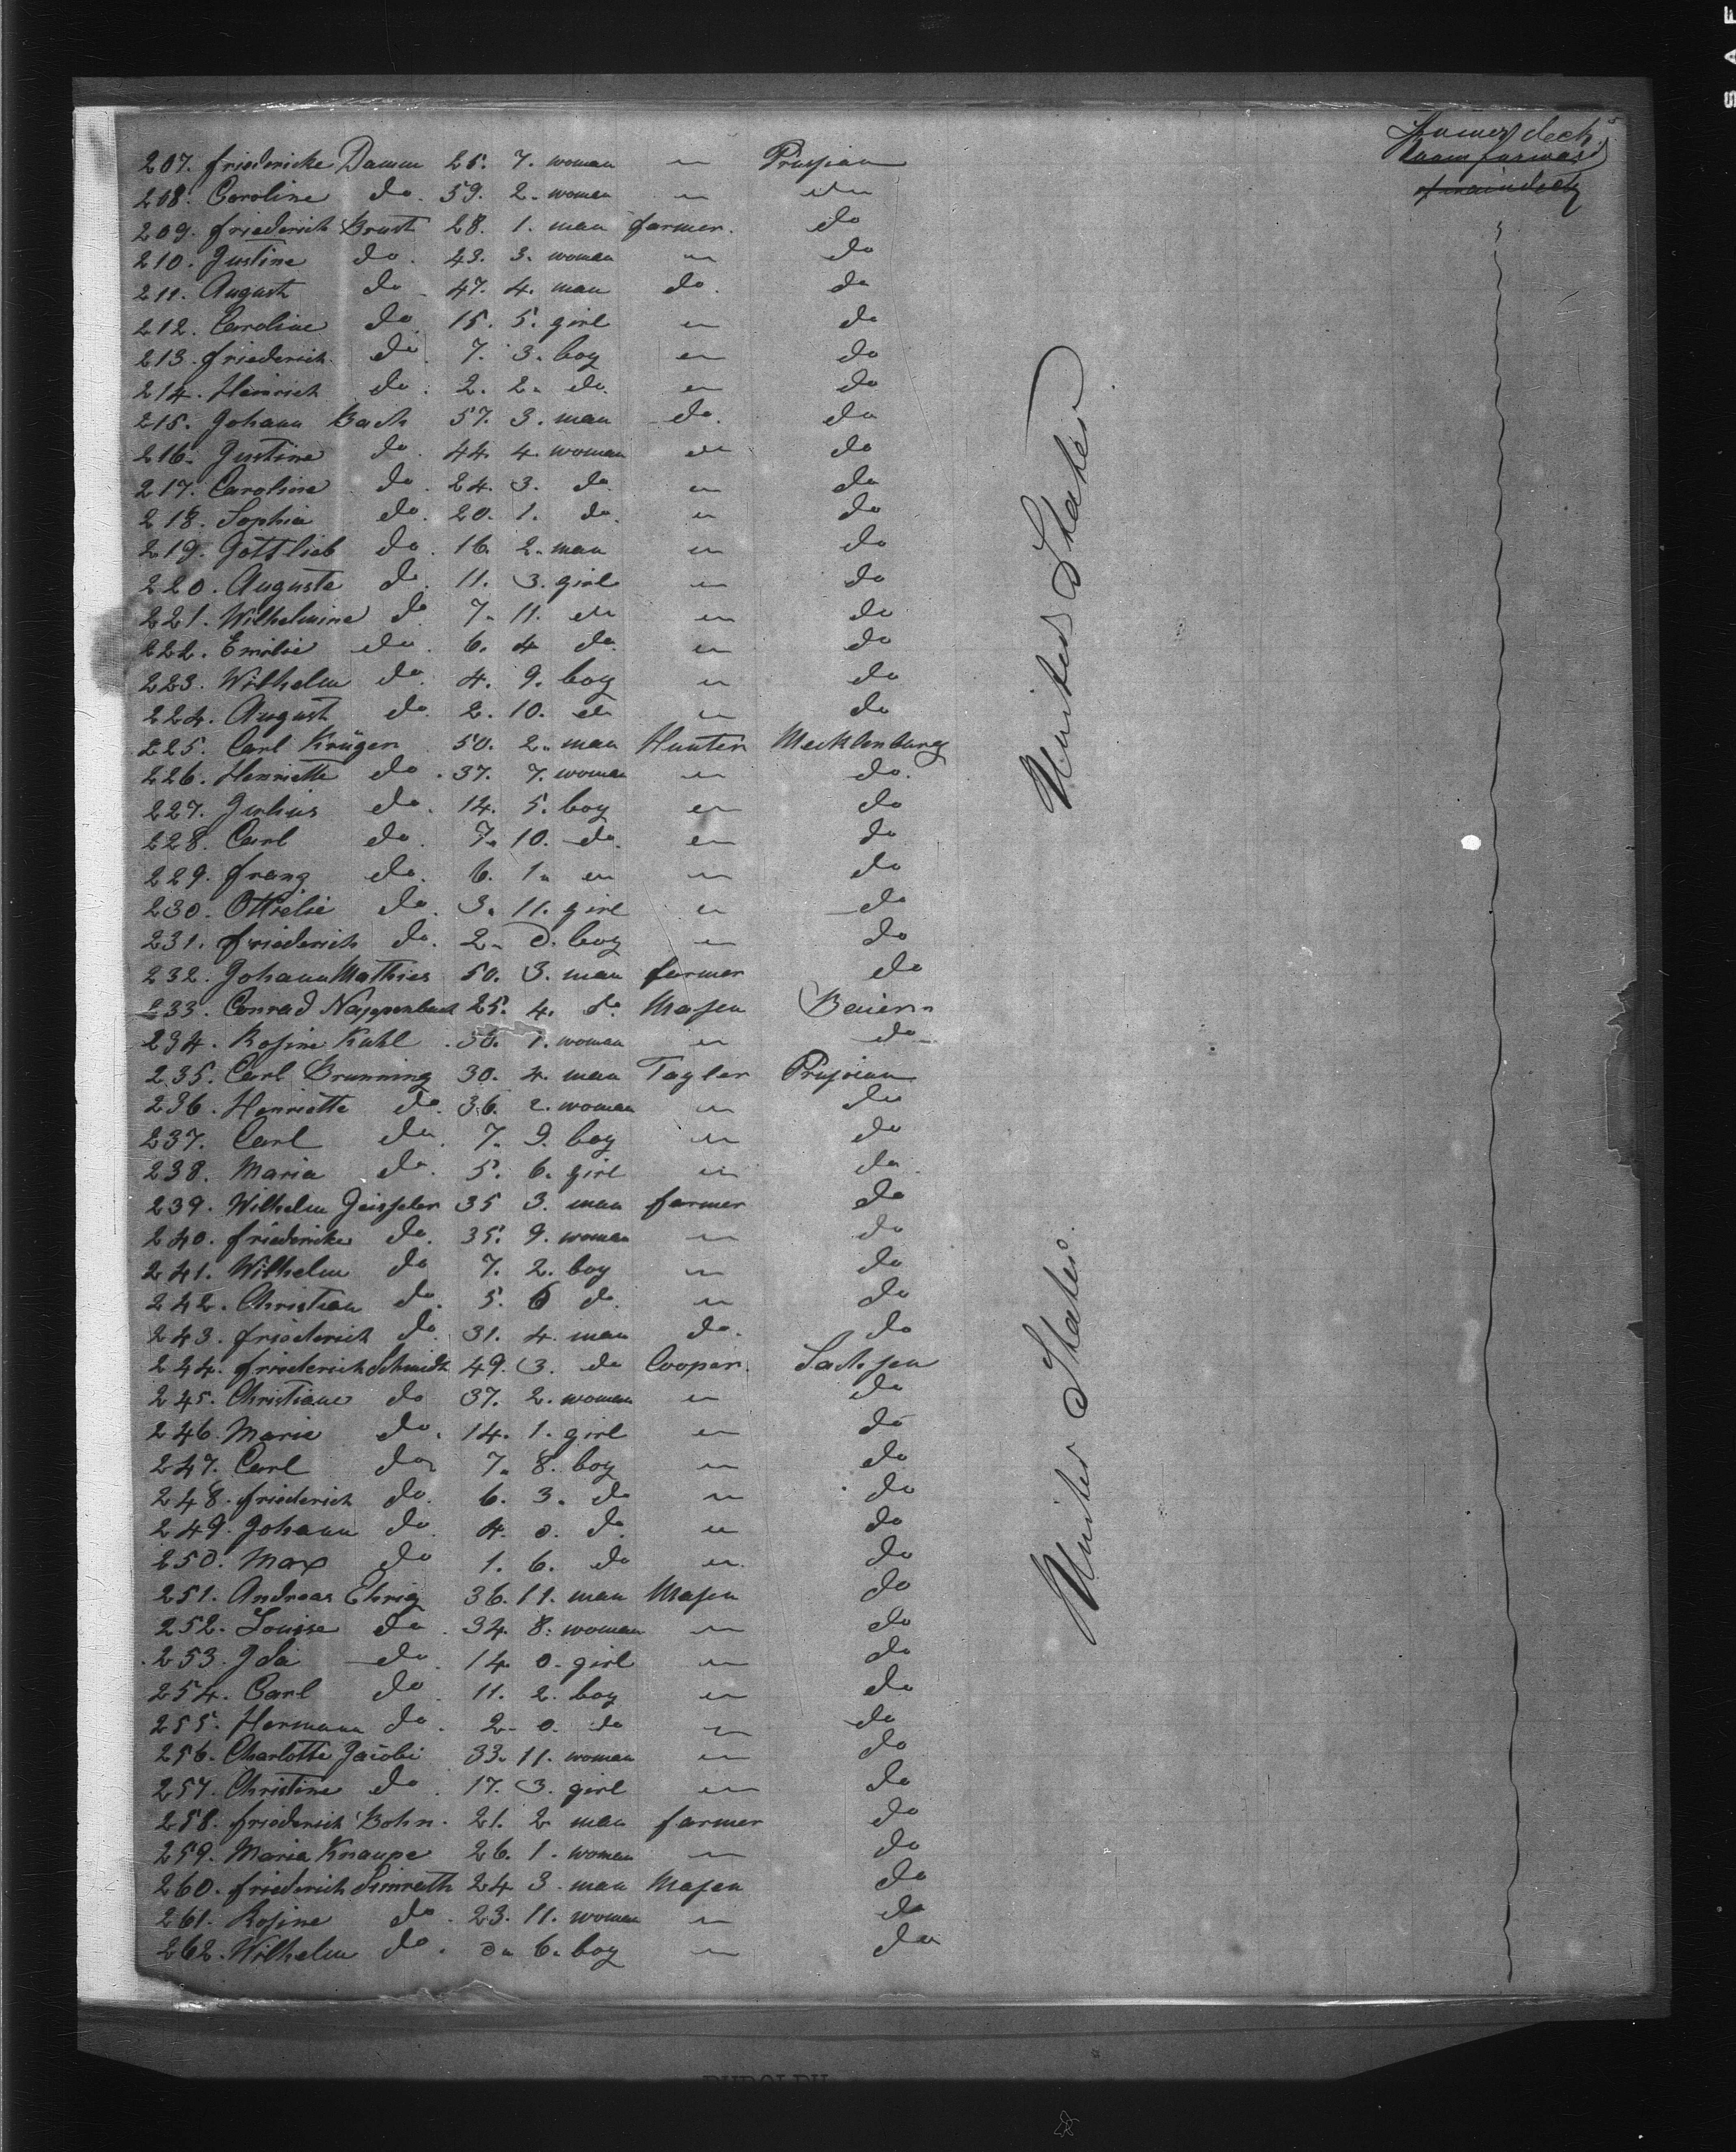 deck
207. friedericke Damm 25. 7. woman " Prussian
208. Caroline do. 59. 2. woman " do
209. friederich Brust 28. 1. man farmer. do
210. Justine do. 43. 3. woman " do
211. August do 47. 4. man do. do
212. Caroline do. 15. 5. girl " do
213. friederich do. 7. 3. boy " do
214. Heinrich do. 2. 2. do. " do
215. Johann Bach 57. 3. man do. do
216. Justine do. 44. 4. woman " do
217. Caroline do. 24. 3. do. " do
218. Sophia do. 20. 1. do. " do
219. Gottlieb do. 16. 2. man " do
220. Auguste do. 11. 3. girl " do
221. Wilhelmine do 7. 11. do " do
222. Emilie do. 6. 4 do. " do
223. Wilhelm do. 4. 9. boy " do
224. August do. 2. 10. do " do
225. Carl Krüger 50. 2. man Hunter Mecklenburg
226. Henriette do. 37. 7. woman " do.
227. Julius do. 14. 5. boy " do
228. Carl do. 7. 10. do. " do
229. franz do. 6. 1. " " do
230. Ottielie do. 3. 11. girl " do
231. friederich do. 2. 0. boy " do
232. Johann Mathies 50. 3. man farmer do
233. Conrad 25. 4. do. Mason Baiern
234. Rosine Kuhl 1. woman " do
235. Carl Brunning 30. 4. man Tayler Prussian
236. Henriette do. 36. 2. woman " do
237. Carl do. 7. 9. boy " do
238. Maria do. 5. 6. girl " do.
239. Wilhelm Geissler 35 3. man farmer do
240. friedericke do. 35. 9. woman " do
241. Wilhelm do 7. 2. boy " do
242. Christian do. 5. 6 do. " do
243. friederich do. 31. 4. man do. do
244. friederich Schmidt 49. 3. do Cooper. Sachsen
245. Christiane do 37. 2. woman " do
246. Marie do. 14. 1. girl " do
247. Carl do. 7. 8. boy " do
248. friederich do. 6. 3. do " do
249. Johann do. 4. 0. do. " do
250. Max do 1. 6. do " do
251. Andreas Ehrig 36. 11. man Mason do
252. Louise do. 34. 8. woman " do
253. Ida do. 14. 0. girl " do
254. Carl do. 11. 2. boy " do
255. Hermann do. 2. 0. do " do
256. Charlotte Jacobi 33. 11. woman " do
257. Christine do. 17. 3. girl " do
258. friederich Bohn. 21. 2 man farmer do
259. Maria Knaupe 26. 1. woman " do
260. friederich Simroth 24 3. man Mason do
261. Rosine do. 23. 11. woman " do
262. Wilhelm do. 0. 6. boy " do
United States
United States